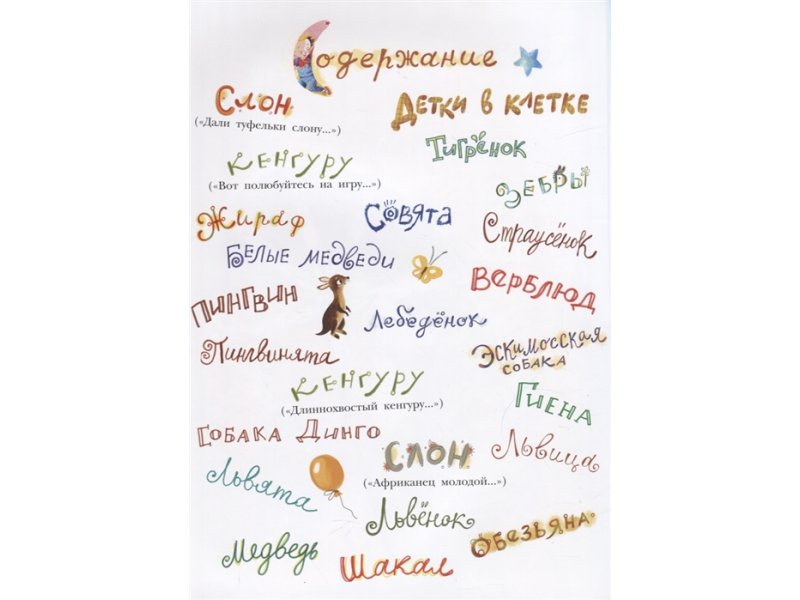 Содержание
Слон
(«Дали туфельки слону...»)
Детки в клетке
Тигрёнок
Кенгуру
(«Вот полюбуйтесь на игру...»)
Зебры
Жираф
Совята
Страусёнок
Белые медведи
Верблюд
Пингвин
Лебедёнок
Эскимосская
собака
Пингвинята
Кенгуру
(«Длиннохвостый кенгуру...»)
Гиена
Собака Динго
Слон
(«Африканец молодой...»)
Львица
Львята
Львёнок
Обезьяна
Медведь
Шакал